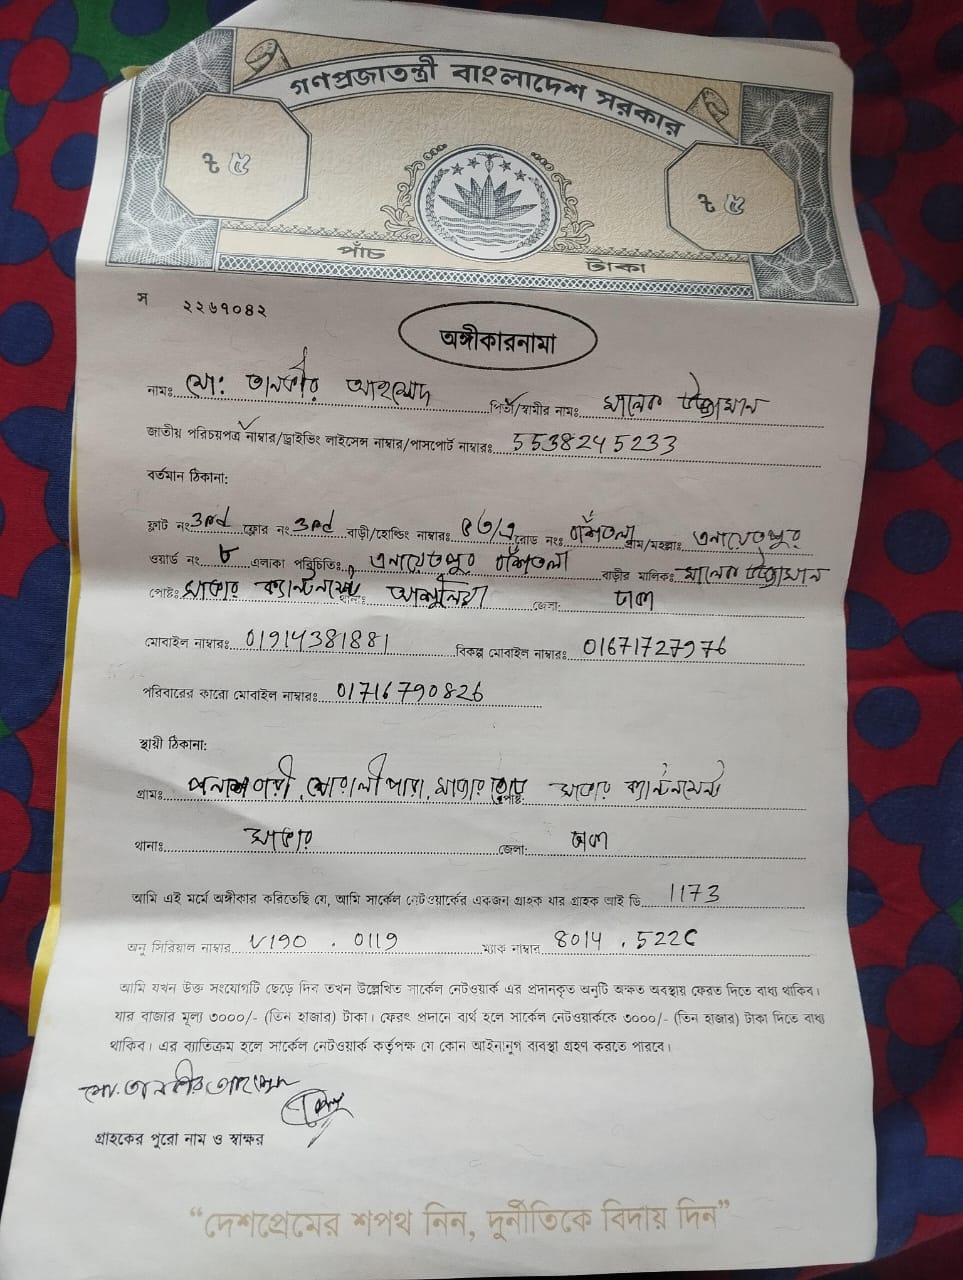 গণপ্রজাতন্ত্রী বাংলাদেশ সরকার
৳ ৫
৳ ৫
পাঁচ টাকা
স ২২৬৭০৪২
অঙ্গীকারনামা
নামঃ মো: তানভীর আহম্মেদ পিতা/স্বামীর নামঃ মালেক উজ্জামান
জাতীয় পরিচয়পত্র নাম্বার/ড্রাইভিং লাইসেন্স নাম্বার/পাসপোর্ট নাম্বারঃ 5538245233
বর্তমান ঠিকানা:
ফ্লাট নং 3rd ফ্লোর নং 3rd বাড়ী/হোল্ডিং নাম্বারঃ রোড নংঃ বাঁশতলা গ্রাম/মহল্লাঃ এনায়েতপুর
ওয়ার্ড নং ৮ এলাকা পরিচিতিঃ এনায়েতপুর বাঁশতলা বাড়ীর মালিকঃ মালেক উজ্জামান
পোষ্টঃ সাভার ক্যান্টনমেন্ট থানাঃ আশুলিয়া জেলা: ঢাকা
মোবাইল নাম্বারঃ 01914381881 বিকল্প মোবাইল নাম্বারঃ 01671727976
পরিবারের কারো মোবাইল নাম্বারঃ 01716790826
স্থায়ী ঠিকানা:
গ্রামঃ পলাশবাড়ী, পোষ্টঃ সাভার ক্যান্টনমেন্ট
থানাঃ সাভার জেলা: ঢাকা
আমি এই মর্মে অঙ্গীকার করিতেছি যে, আমি সার্কেল নেটওয়ার্কের একজন গ্রাহক যার গ্রাহক আই ডি 1173
অনু সিরিয়াল নাম্বার V190 . 0119 ম্যাক নাম্বার 8014 . 522C
আমি যখন উক্ত সংযোগটি ছেড়ে দিব তখন উল্লেখিত সার্কেল নেটওয়ার্ক এর প্রদানকৃত অনুটি অক্ষত অবস্থায় ফেরত দিতে বাধ্য থাকিব।
যার বাজার মূল্য ৩০০০/- (তিন হাজার) টাকা। ফেরৎ প্রদানে ব্যর্থ হলে সার্কেল নেটওয়ার্ককে ৩০০০/- (তিন হাজার) টাকা দিতে বাধ্য
থাকিব। এর ব্যাতিক্রম হলে সার্কেল নেটওয়ার্ক কর্তৃপক্ষ যে কোন আইনানুগ ব্যবস্থা গ্রহণ করতে পারবে।
মো. তানভীর আহম্মেদ
গ্রাহকের পুরো নাম ও স্বাক্ষর
“দেশপ্রেমের শপথ নিন, দুর্নীতিকে বিদায় দিন”